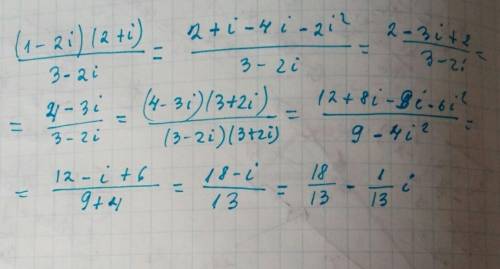 (1-2i)(2+i)/3-2i = 2+i-4i-2i²/3-2i = 2-3i+2/3-2i =
= 4-3i/3-2i = (4-3i)(3+2i)/(3-2i)(3+2i) = 12+8i-9i-6i²/9-4i² =
= 12-i+6/9+4 = 18-i/13 = 18/13 - 1/13 i